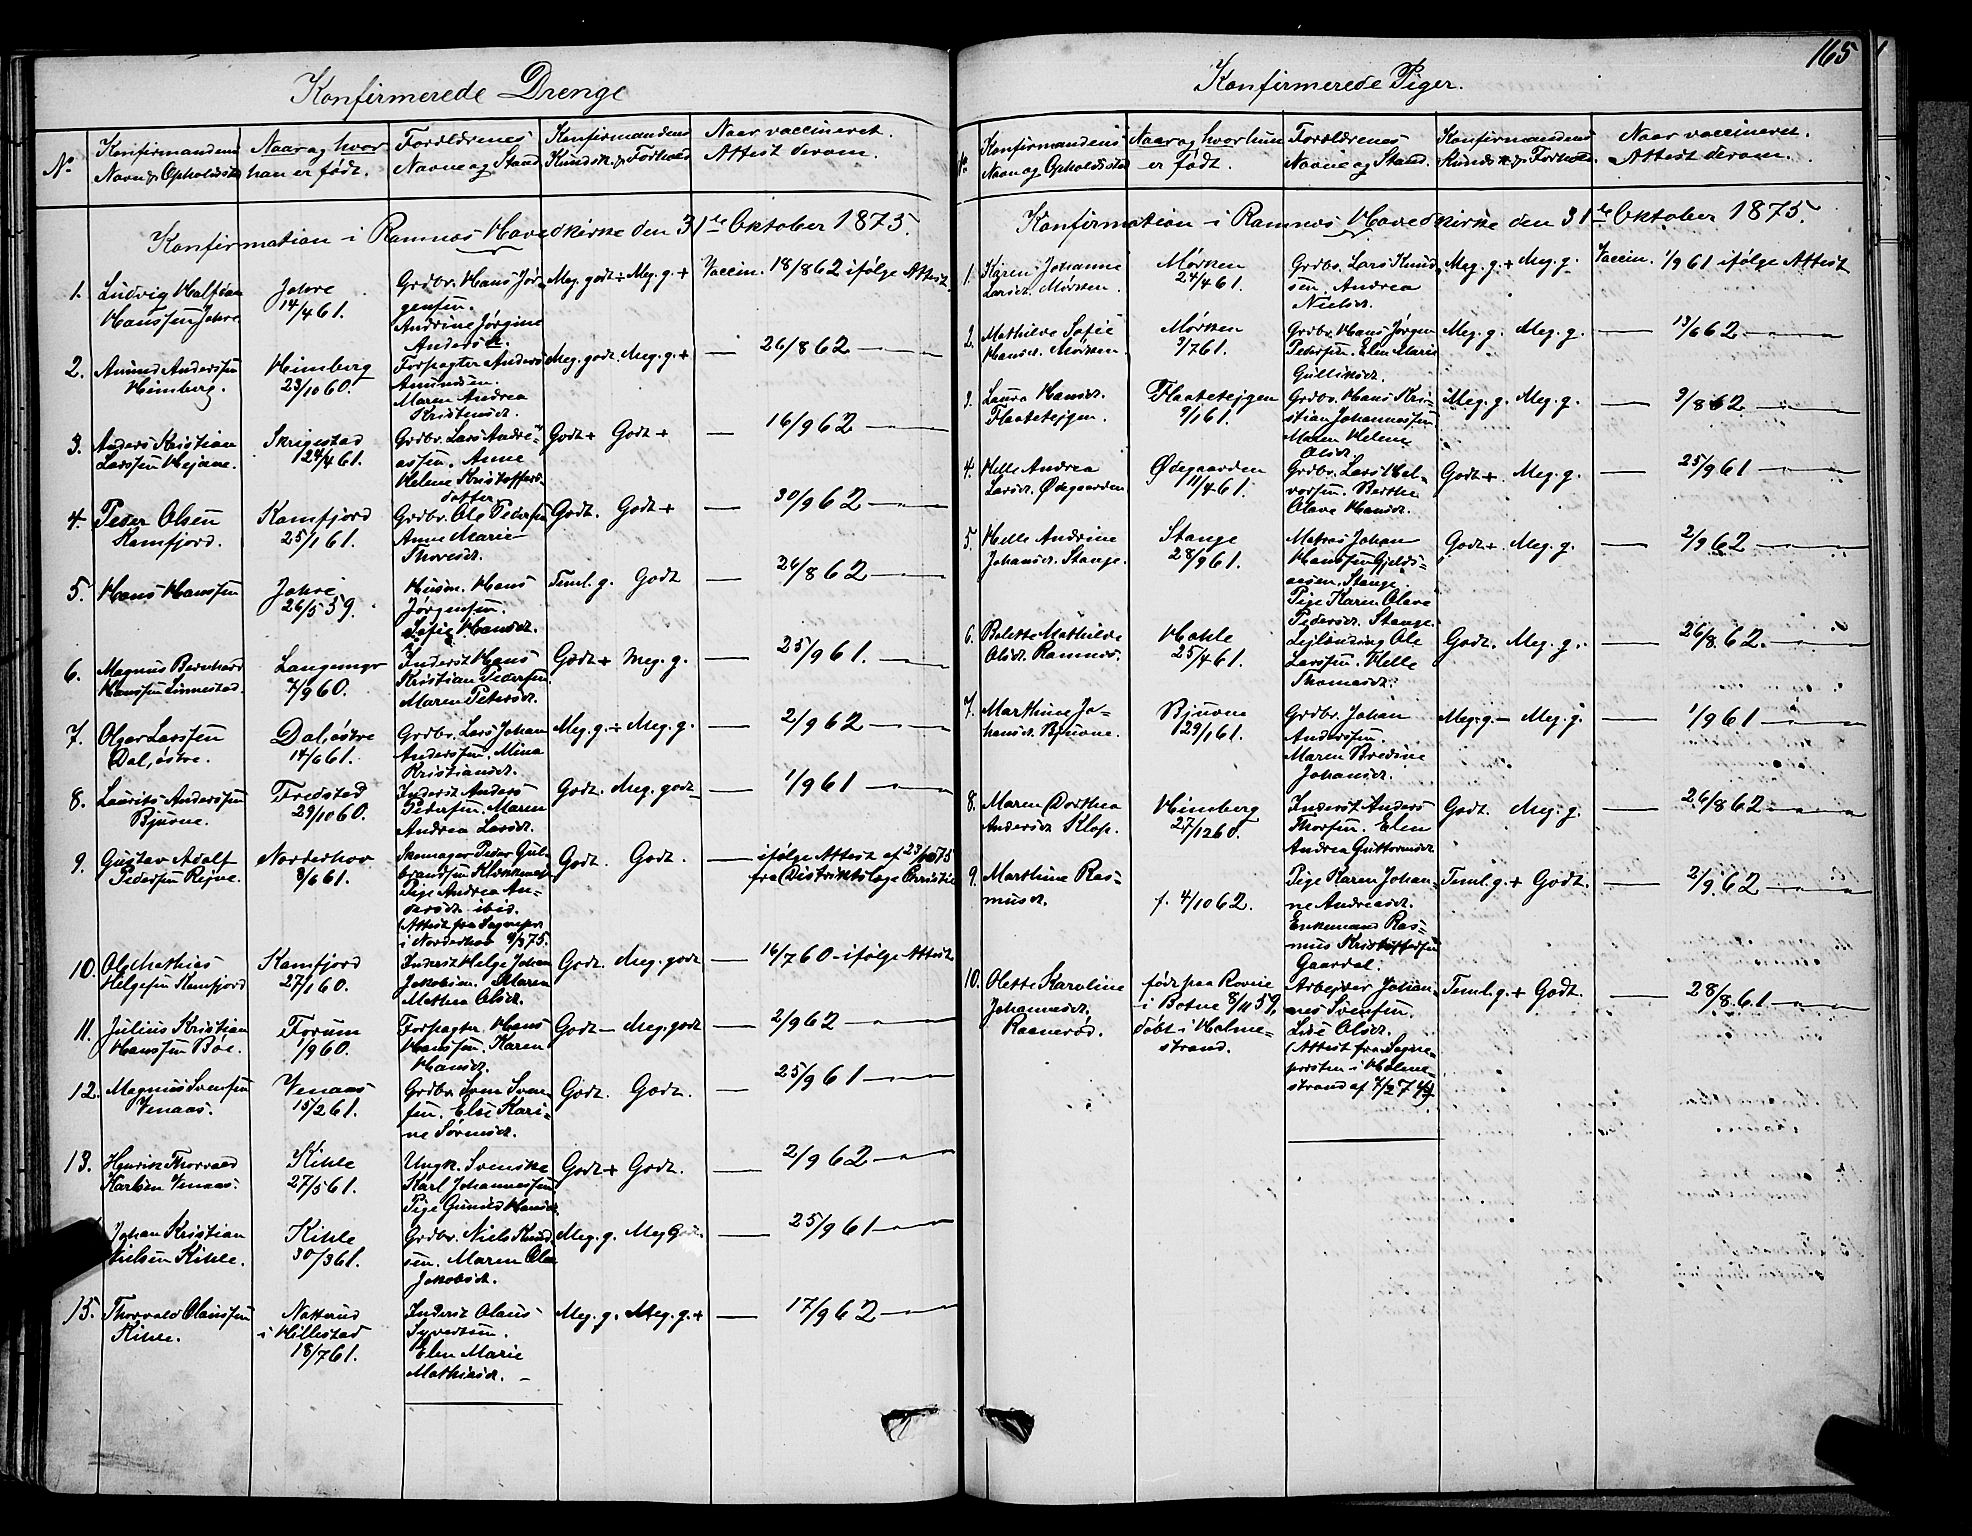 165
Konfirmerede Drenge
No.
Konfirmandens
Navn og Opholdssted
Naar og hvor
han er født.
Forældrenes
Navne og Stand
Konfirmandens
Kundsk. og Forhold
Naar vaccineret.
Attest derom.
Konfirmation i Ramnæs Hovedkirke den 31te Oktober 1875.
1. Ludvig
Hanssen Jahre
Jahre
14/4 61.
Grdbr. Hans Jør-
gensen.
Andrine Jørgine
Andersd.
Meg. godt ÷ Meg. g. +
Vaccin. 18/8 62 ifølge Attest
2. Amund Anderssen
Himberg.
Himberg
23/10 60.
Forpagter Anders
Amundsen.
Maren Andrea
Kristensd.
Meg. godt. Meg. g. +
— 26/8 62 — —
3. Anders Kristian
Larssen Hejane.
Skrigestad
24/4 61.
Grdbr. Lars Andre-
assen. Anne
Helene Kristoffers-
datter
Godt + Godt +
— 16/9 62 — —
4. Peder Olsen
Kamfjord.
Kamfjord
25/1 61.
Grdbr. Ole Pedersen
Anne Marie
Thoresd.
Godt. Godt +
— 30/9 62 — —
5. Hans Hanssen
Jahre
26/5 59.
Husm. Hans
Jørgensen.
Sofie Hansd.
Teml. g. Godt
— 26/8 62 — —
6. Magnus Bernhard
Hanssen Linnestad.
7/9 60.
Inderst Hans
Kristian Pedersen.
Maren Petersd.
Godt + Meg. g.
— 25/9 61. — —
7. Olger Larssen
Dal, østre.
Dal, østre
14/6 61.
Grdbr. Lars Johan
Anderssen. Mina
Kristiansd.
Meg. g. ÷ Meg. g.
— 2/9 62 — —
8. Laurits Anderssen
Bjuvne.
Fredstad
29/10 60.
Inderst Anders
Pedersen. Maren
Andrea Larsd.
Godt. Meg. godt
— 1/9 61 — —
9. Gustav Adolf
Pedersen
Norderhov
8/6 61.
Skomager Peder Gul-
brandsen
Pige Andrea An-
dersd. ibid.
Attest fra Sognepr.
i Norderhov 9/3 75.
Godt. Godt.
— ifølge Attest af
fra Distriktslæge Christie
10. Ole Mathias
Helgesen Kamfjord
Kamfjord
27/1 60.
Inderst Helge Johan
Jakobsen. Maren
Mathea Olsd.
Godt. Meg. godt
— 16/7 60 – ifølge Attest
11. Julius Kristian
Hanssen Bøe.
Forum
1/9 60.
Forpagter Hans
Hanssen. Karen
Hansd.
Godt — Meg. godt
— 2/9 62 — —
12. Magnus Svensen
Venaas.
Venaas
15/2 61.
Grdbr. Sven Sven-
sen. Else Kari-
ne Sørensd.
Godt. Godt.
— 25/9 61 — —
13. Henrik Thorvald
Karlsen Venaas.
Kihle
27/5 61.
Ungk. Svenske
Karl Johannessen
Pige Gunild Hansd.
Godt + Godt.
— 2/9 62 — —
Johan Kristian
Nielsen Kihle.
Kihle
30/3 61.
Grdbr. Niels Knud-
sen. Maren Olea
Jakobsd.
Meg. g. Meg God.
— 25/9 61 — —
15. Thorvald Olaussen
Kihle.
i Hillestad
18/7 61.
Inderst Olaus
Syvertsen.
Elen Marie
Mathiasd. –
Meg. g. Meg. g. +
— 17/9 62 — —
Konfirmerede Piger.
No.
Konfirmandens
Navn og Opholdssted
Naar og hvor hun
er født.
Forældrenes
Navne og Stand.
Konfirmandens
Kundsk. og Forhold
Naar vaccineret.
Attest derom.
Konfirmation i Ramnæs Hovedkirke den 31te Oktober 1875.
1. Karen Johanne
Larsd. Mørken.
Mørken
24/4 61.
Grdbr. Lars Knud-
sen. Andrea
Nielsd.
Meg. g. + Meg. g.
Vaccin. 1/9 61 ifølge Attest
2. Mathilde Sofie
Hansd. Mørken.
Mørken
3/7 61.
Grdbr. Hans Jørgen
Pedersen. Elen Marie
Gulliksd.
Meg. g. Meg. g.
— 13/6 62 — —
3. Laura Hansd.
Flaatetejgen.
Flaatetejgen
9/1 61.
Grdbr. Hans Kri-
stian Johannessen
Maren Helene
Olsd.
Meg. g. Meg. g.
— 9/8 62 — —
4. Helle Andrea
Larsd. Ødegaarden
Ødegaarden
11/4 61.
Grdbr. Lars Hal-
vorsen. Berthe
Olave Hansd.
Godt +. Meg. g.
— 25/9 61 — —
5. Helle Andrine
Johansd. Stange.
Stange
28/9 61.
Matros Johan
Hanssen Gjelds-
aasen. Stange.
Pige Karen Olave
Pedersd. Stange.
Godt +. Meg. g.
— 2/9 62 — —
6. Bolette Mathilde
Olsd. Ramnæs.
Hohle
25/4 61.
Lejlænding Ole
Larssen. Helle
Thomasd.
Godt. Meg. g.
— 26/8 62. — —
7. Marthine Jo-
hansd. Bjuvne.
Bjuvne
29/1 61.
Grdbr. Johan
Anderssen.
Maren Bredine
Johansd.
Meg. g. — Meg. g.
— 1/9 61 — —
8. Maren Dorthea
Andersd. Klop.
Himberg
27/12 60.
Inderst Anders
Thorsen. Elen
Andrea Guttormsd.
Godt. Meg. g.
— 26/8 62 — —
9. Marthine Ras-
musd.
f. 4/10 62.
Pige Karen Johan-
ne Andreasd.
Enkemand Ras-
mus Kristoffersen
Gaardal.
Teml. g. + Godt.
— 2/9 62 — —
10. Olette Karoline
Johannesd.
Raanerød.
født paa Rovne
i Botne 8/11 59,
døbt i Holme-
strand.
Arbejder Johan-
nes Svensen.
Lise Olsd.
(Attest fra Sogne-
præsten i Holme-
strand af 7/2 74)
Teml. g. + Godt.
— 28/8 61. — —